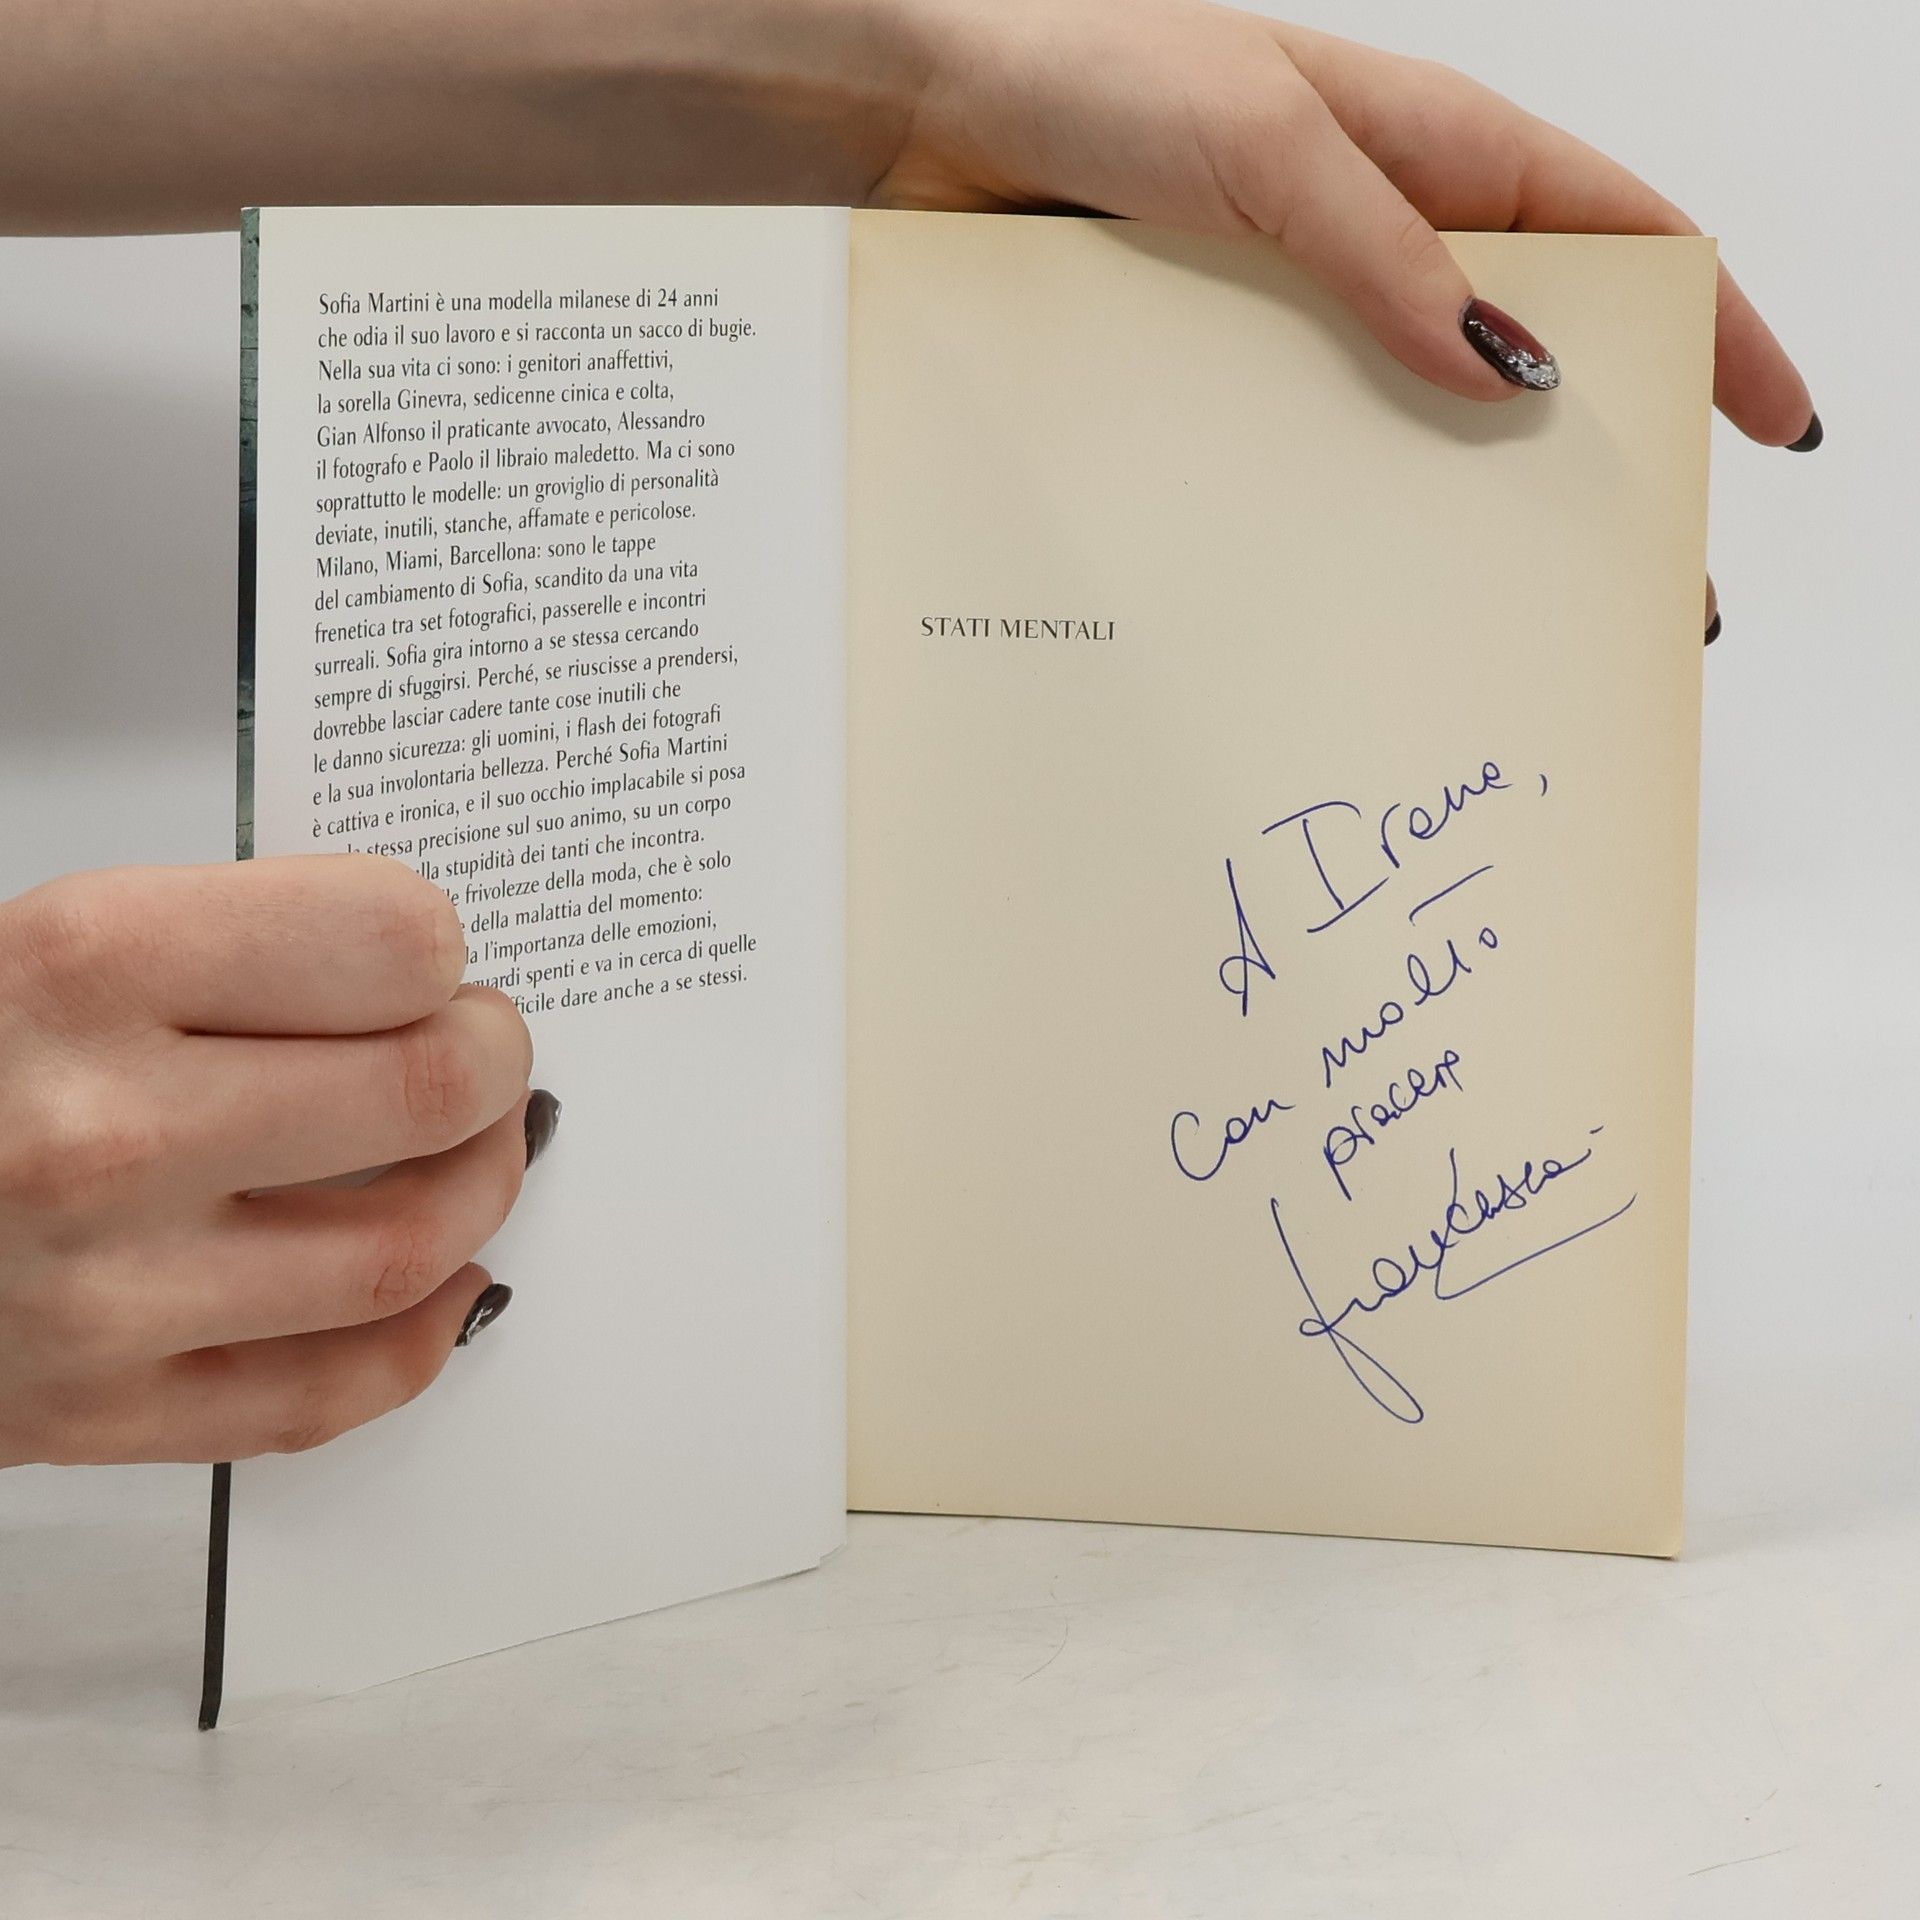 Sofia Martini è una modella milanese di 24 anni
che odia il suo lavoro e si racconta un sacco di bugie.
Nella sua vita ci sono: i genitori anaffettivi,
la sorella Ginevra, sedicenne cinica e colta,
Gian Alfonso il praticante avvocato, Alessandro
il fotografo e Paolo il libraio maledetto. Ma ci sono
soprattutto le modelle: un groviglio di personalità
deviate, inutili, stanche, affamate e pericolose.
Milano, Miami, Barcellona: sono le tappe
del cambiamento di Sofia, scandito da una vita
frenetica tra set fotografici, passerelle e incontri
surreali. Sofia gira intorno a se stessa cercando
sempre di sfuggirsi. Perché, se riuscisse a prendersi,
dovrebbe lasciar cadere tante cose inutili che
le danno sicurezza: gli uomini, i flash dei fotografi
e la sua involontaria bellezza. Perché Sofia Martini
è cattiva e ironica, e il suo occhio implacabile si posa
stessa precisione sul suo animo, su un corpo
stupidità dei tanti che incontra.
frivolezze della moda, che è solo
della malattia del momento:
l'importanza delle emozioni,
spenti e va in cerca di quelle
dare anche a se stessi.
STATI MENTALI
A Irene,
Con molto
piacere
Francesca